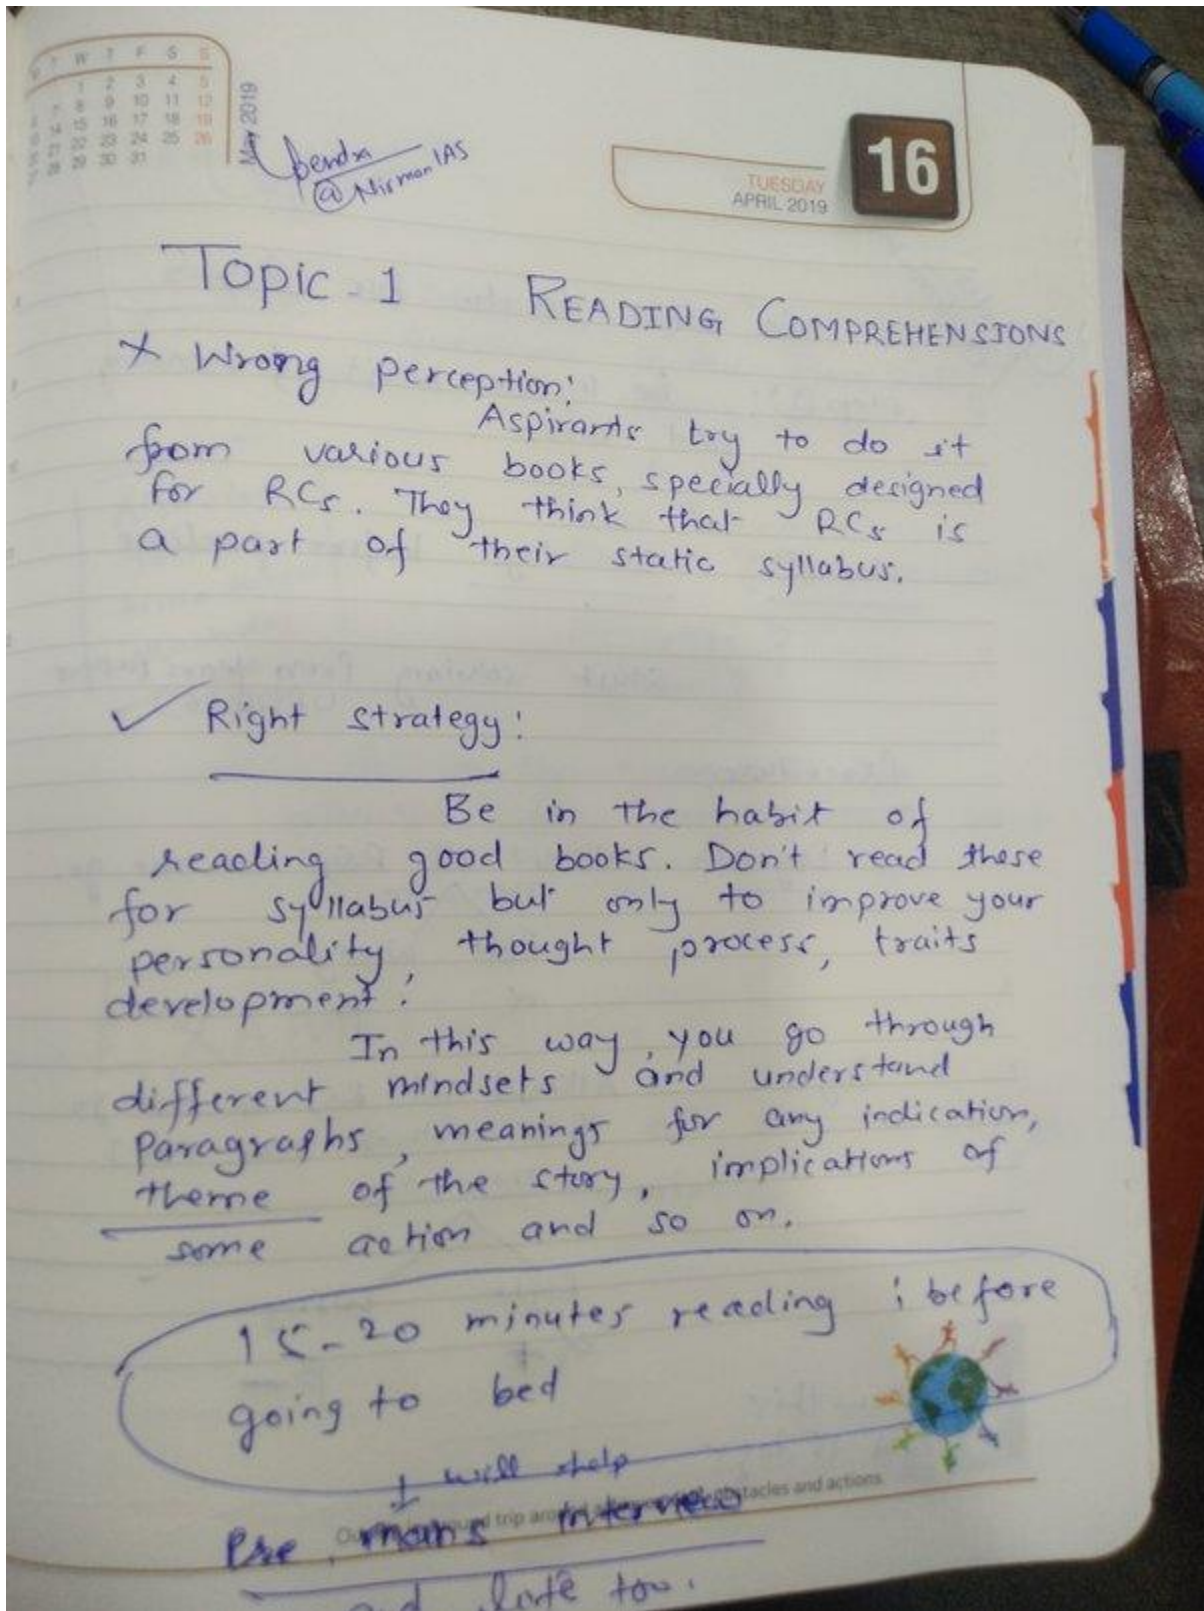 W T F S S
1 2 3 4 5
7 8 9 10 11 12
14 15 16 17 18 19
21 22 23 24 25 26
28 29 30 31
May 2019
Upendra
@Nirman IAS
TUESDAY
APRIL 2019
16
Topic-1 READING COMPREHENSIONS
x Wrong perception:
Aspirants try to do it
from various books, specially designed
for RCs. They think that RCs is
a part of their static syllabus.
✓ Right strategy:
Be in the habit of
reading good books. Don't read these
for syllabus but only to improve your
personality, thought process, traits
development.
In this way, you go through
different mindsets and understand
paragraphs, meanings for any indication,
theme of the story, implications of
some action and so on.
15-20 minutes reading; before
going to bed
↓ will help
Pre, mains interview
trip obstacles and actions
and life too.